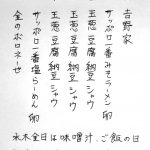 吉野家
サッポロ一番みそラーメン 卵
玉葱豆腐納豆シャウ
玉葱豆腐納豆シャウ
玉葱豆腐納豆シャウ
サッポロ一番塩らーめん 卵
金のボロネーゼ
水木金日は味噌汁、ご飯の日